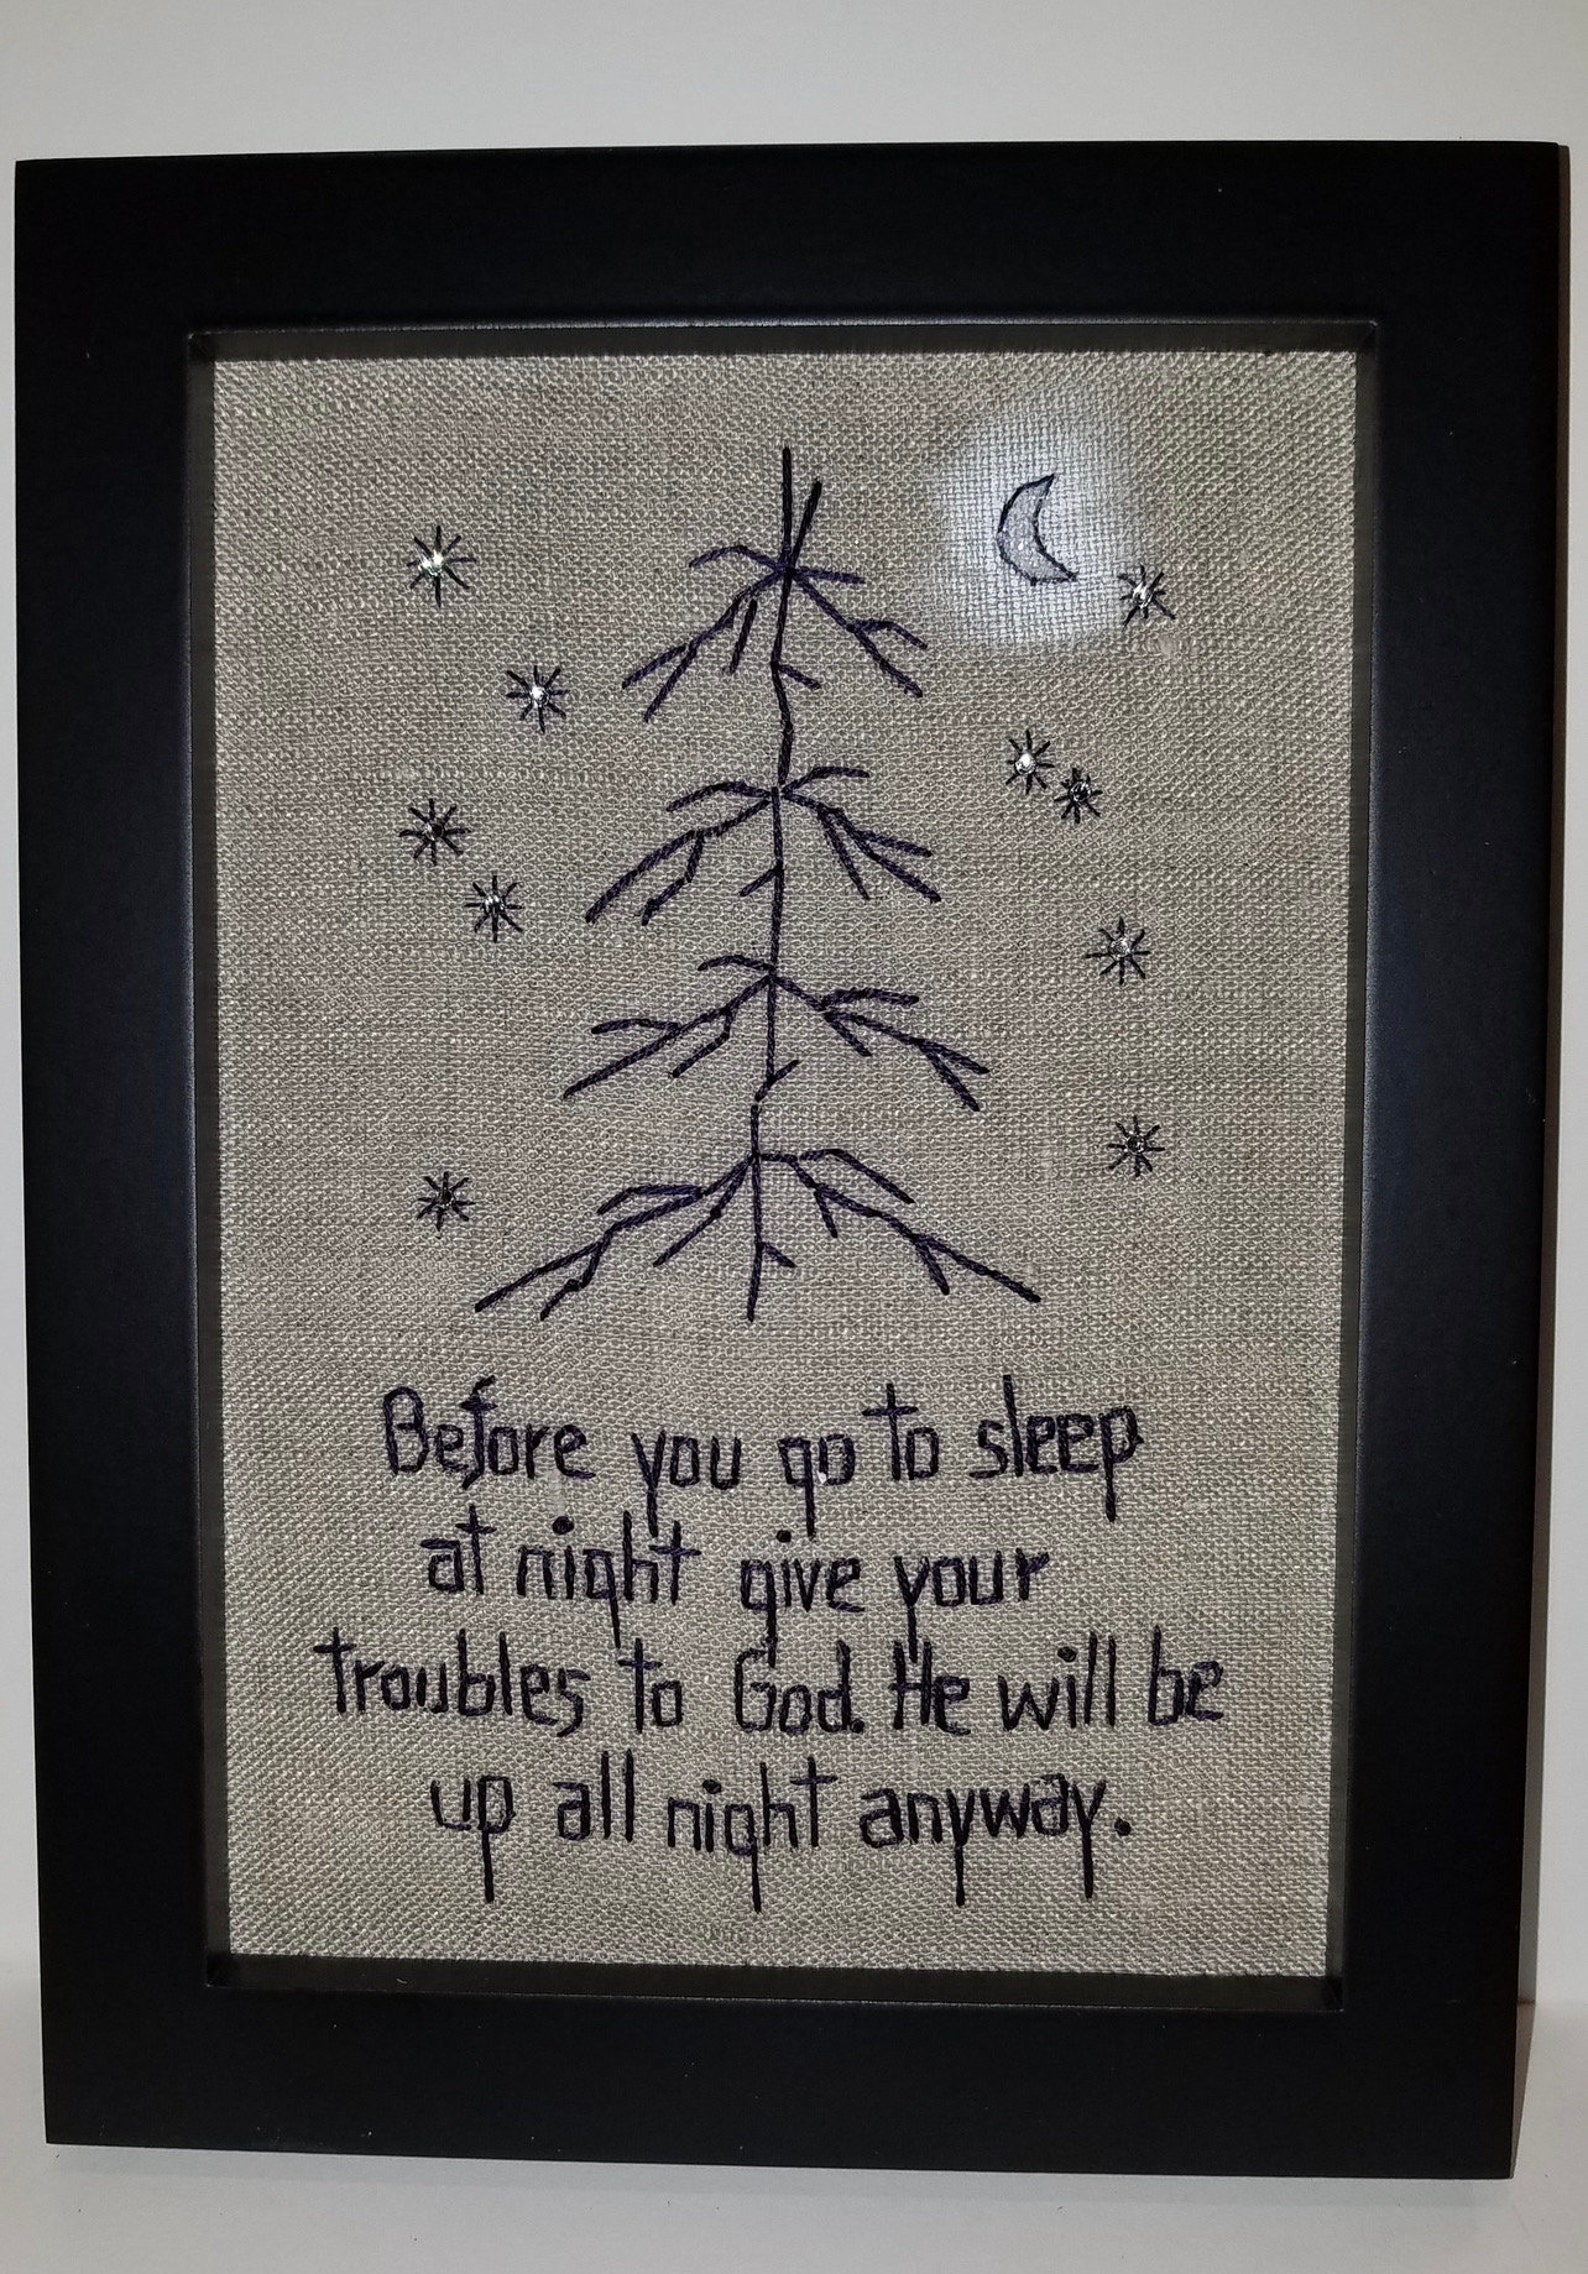 Before you go to sleep
at night give your
troubles to God. He will be
up all night anyway.